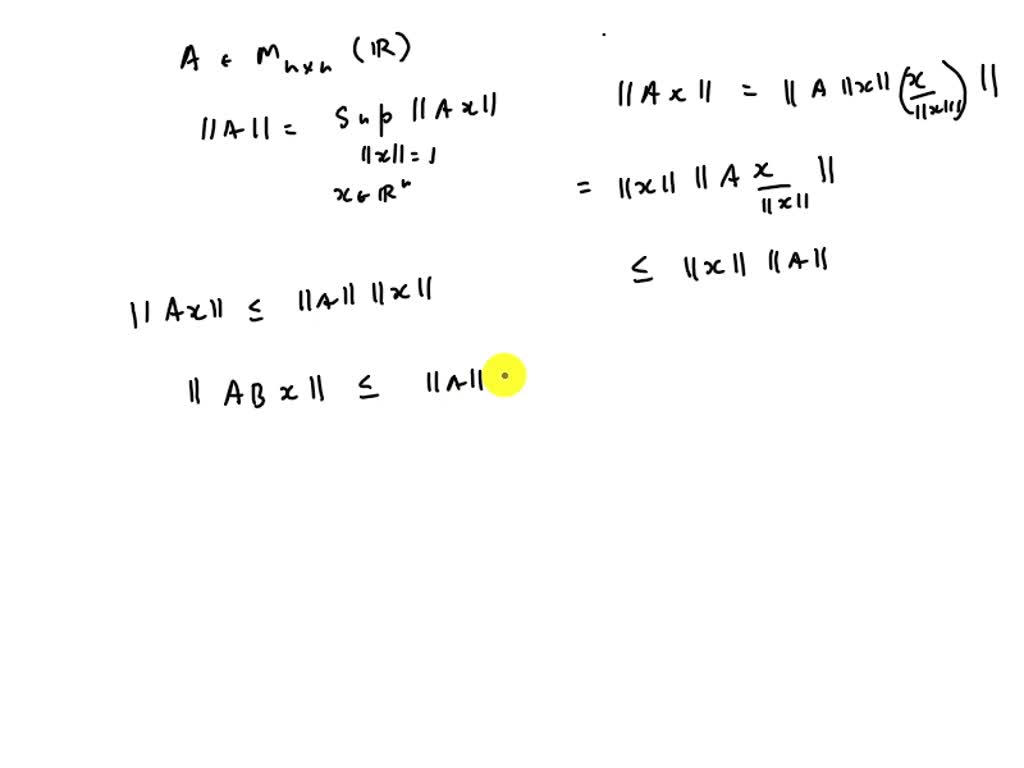 A ϵ M_{n×n} (ℝ)
||A|| = Sup ||Ax||
||x|| = 1
x ϵ ℝⁿ
||Ax|| = ||A ||x|| (x/||x||)||
= ||x|| ||A x/||x|| ||
≤ ||x|| ||A||
||Ax|| ≤ ||A|| ||x||
||ABx|| ≤ ||A||